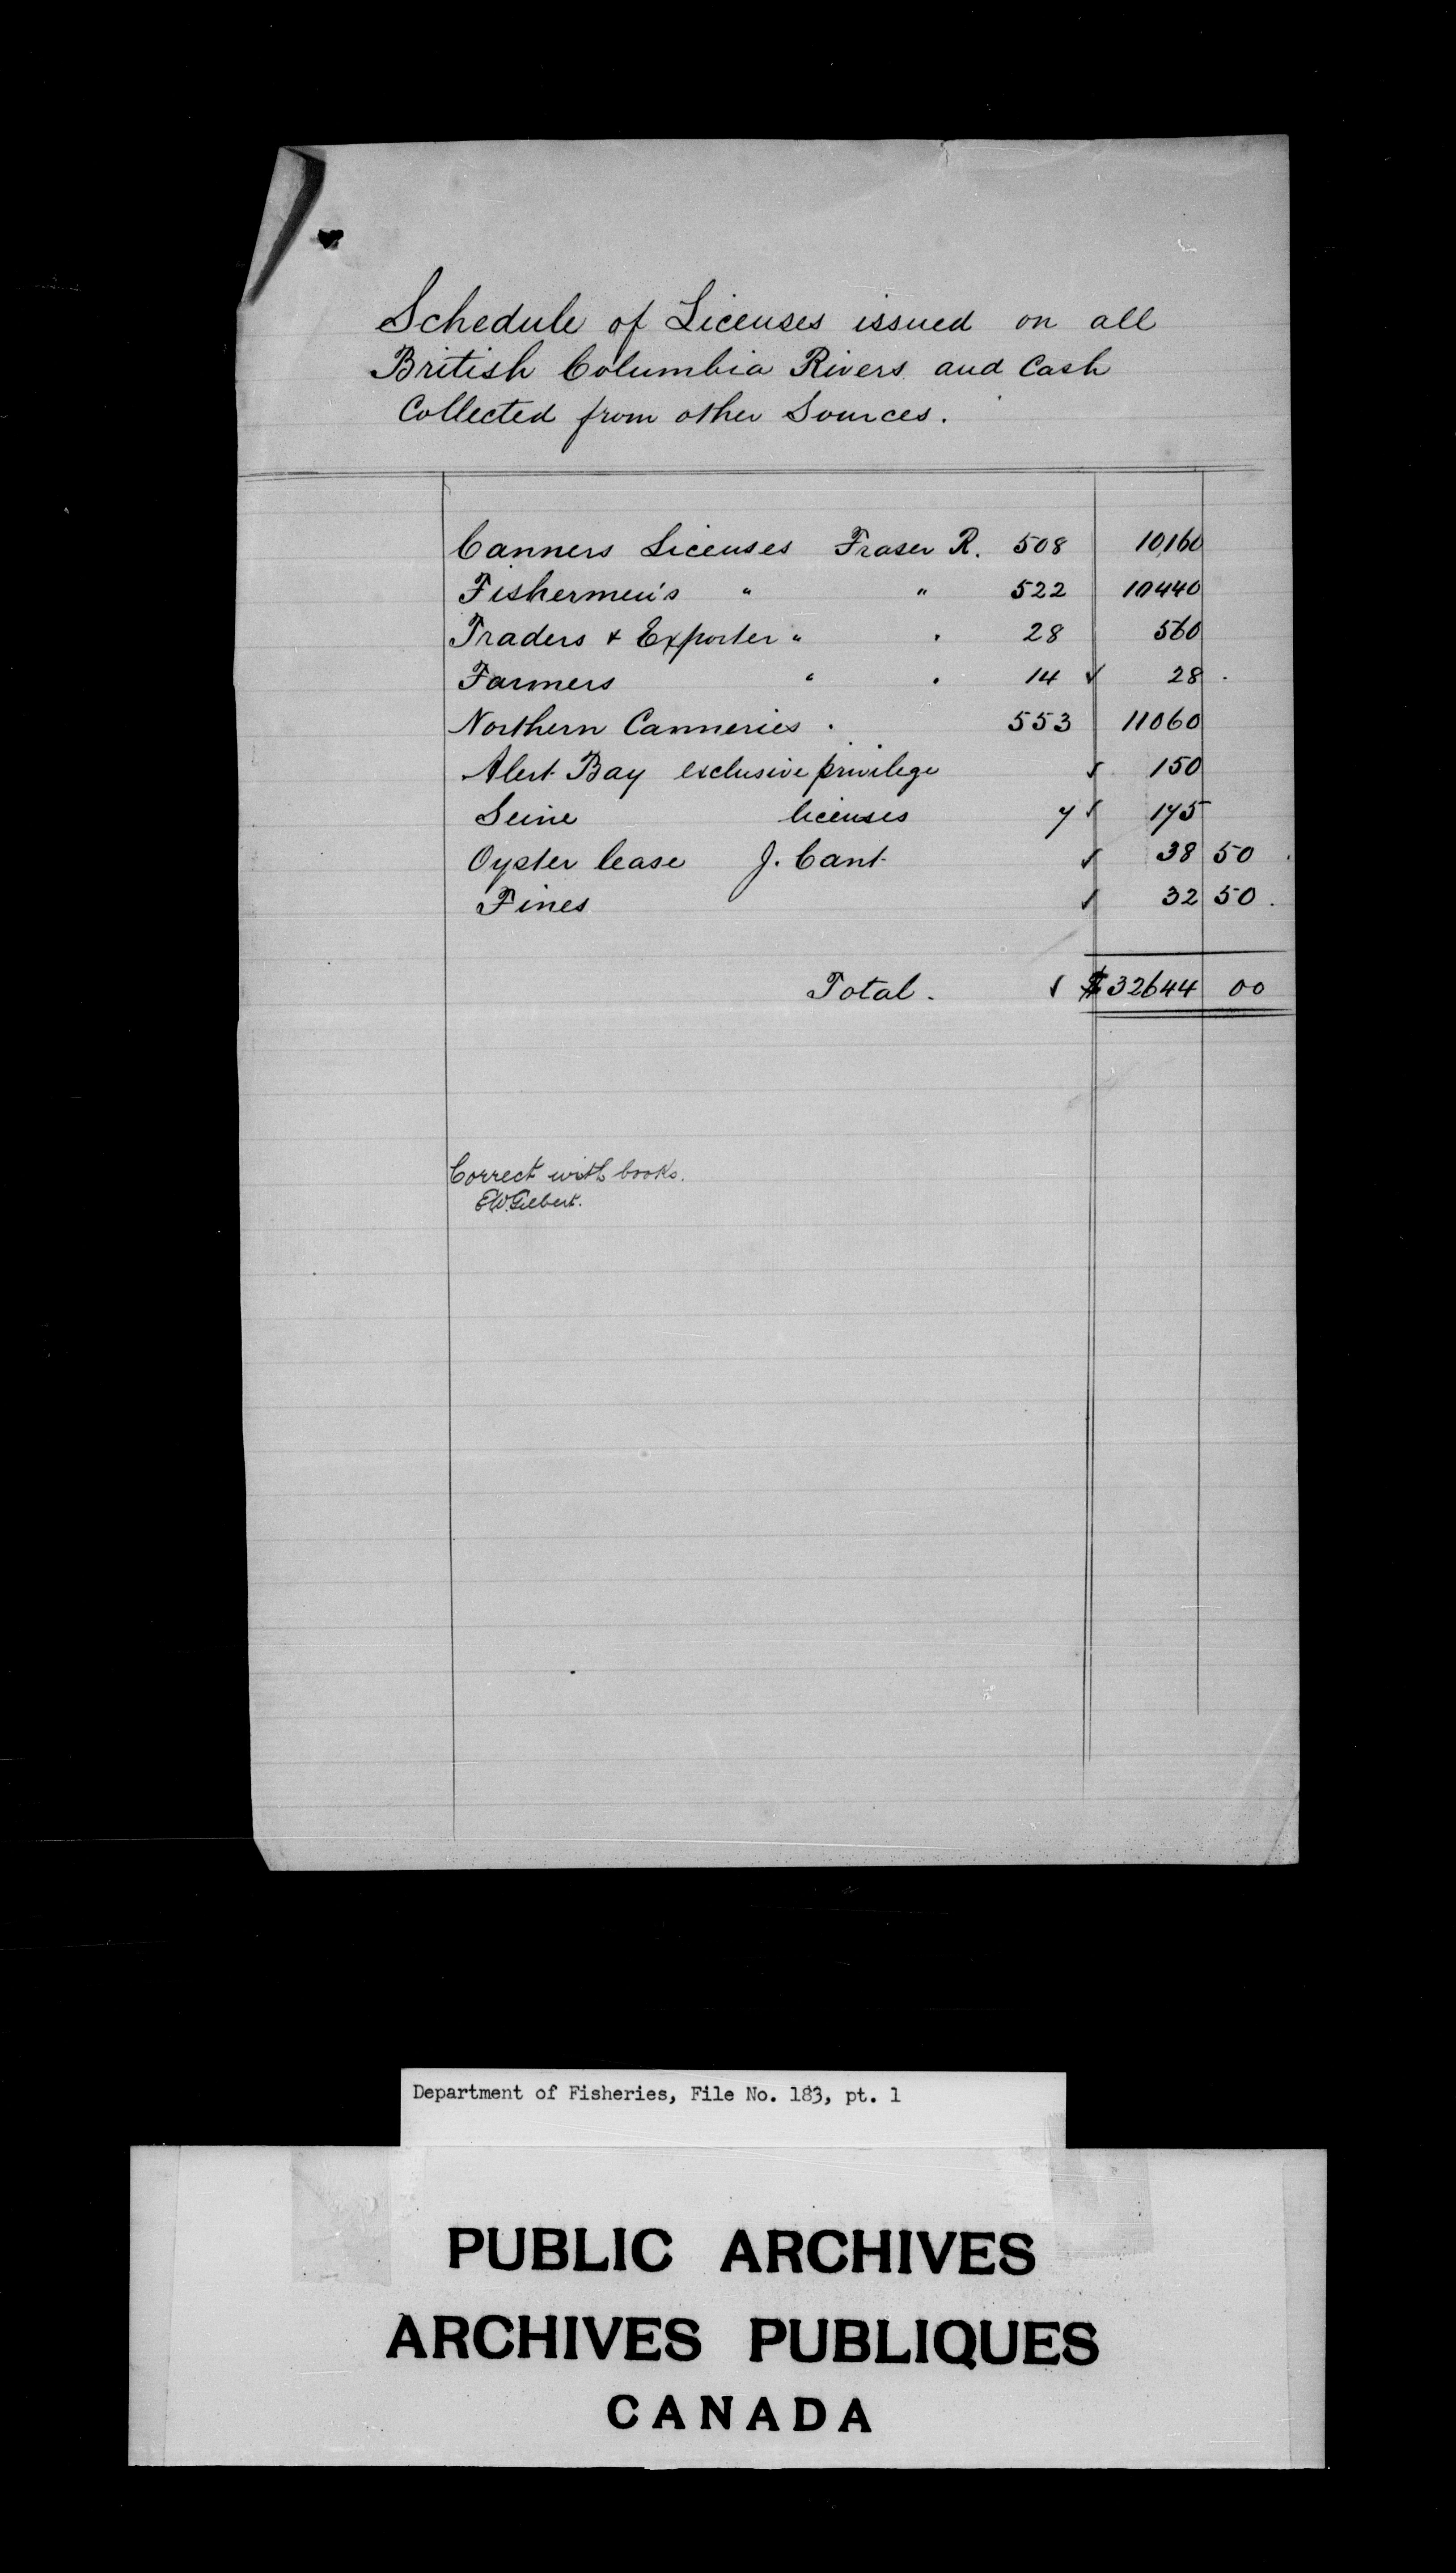 Schedule of Licenses issued on all
British Columbia Rivers and Cash
Collected from other Sources.
Canners Licenses Fraser R. 508 10,160
Fishermen's " " 522 10440
Traders & Exporter " " 28 560
Farmers " " 14 ✓ 28
Northern Canneries . 553 11060
Alert Bay exclusive privilege ✓ 150
Seine licenses 7 ✓ 175
Oyster lease J. Cant ✓ 38 50
Fines ✓ 32 50.
Total. ✓ $32644 00
Correct with books.
E.W. Gilbert.
Department of Fisheries, File No. 183, pt. 1
PUBLIC ARCHIVES
ARCHIVES PUBLIQUES
CANADA